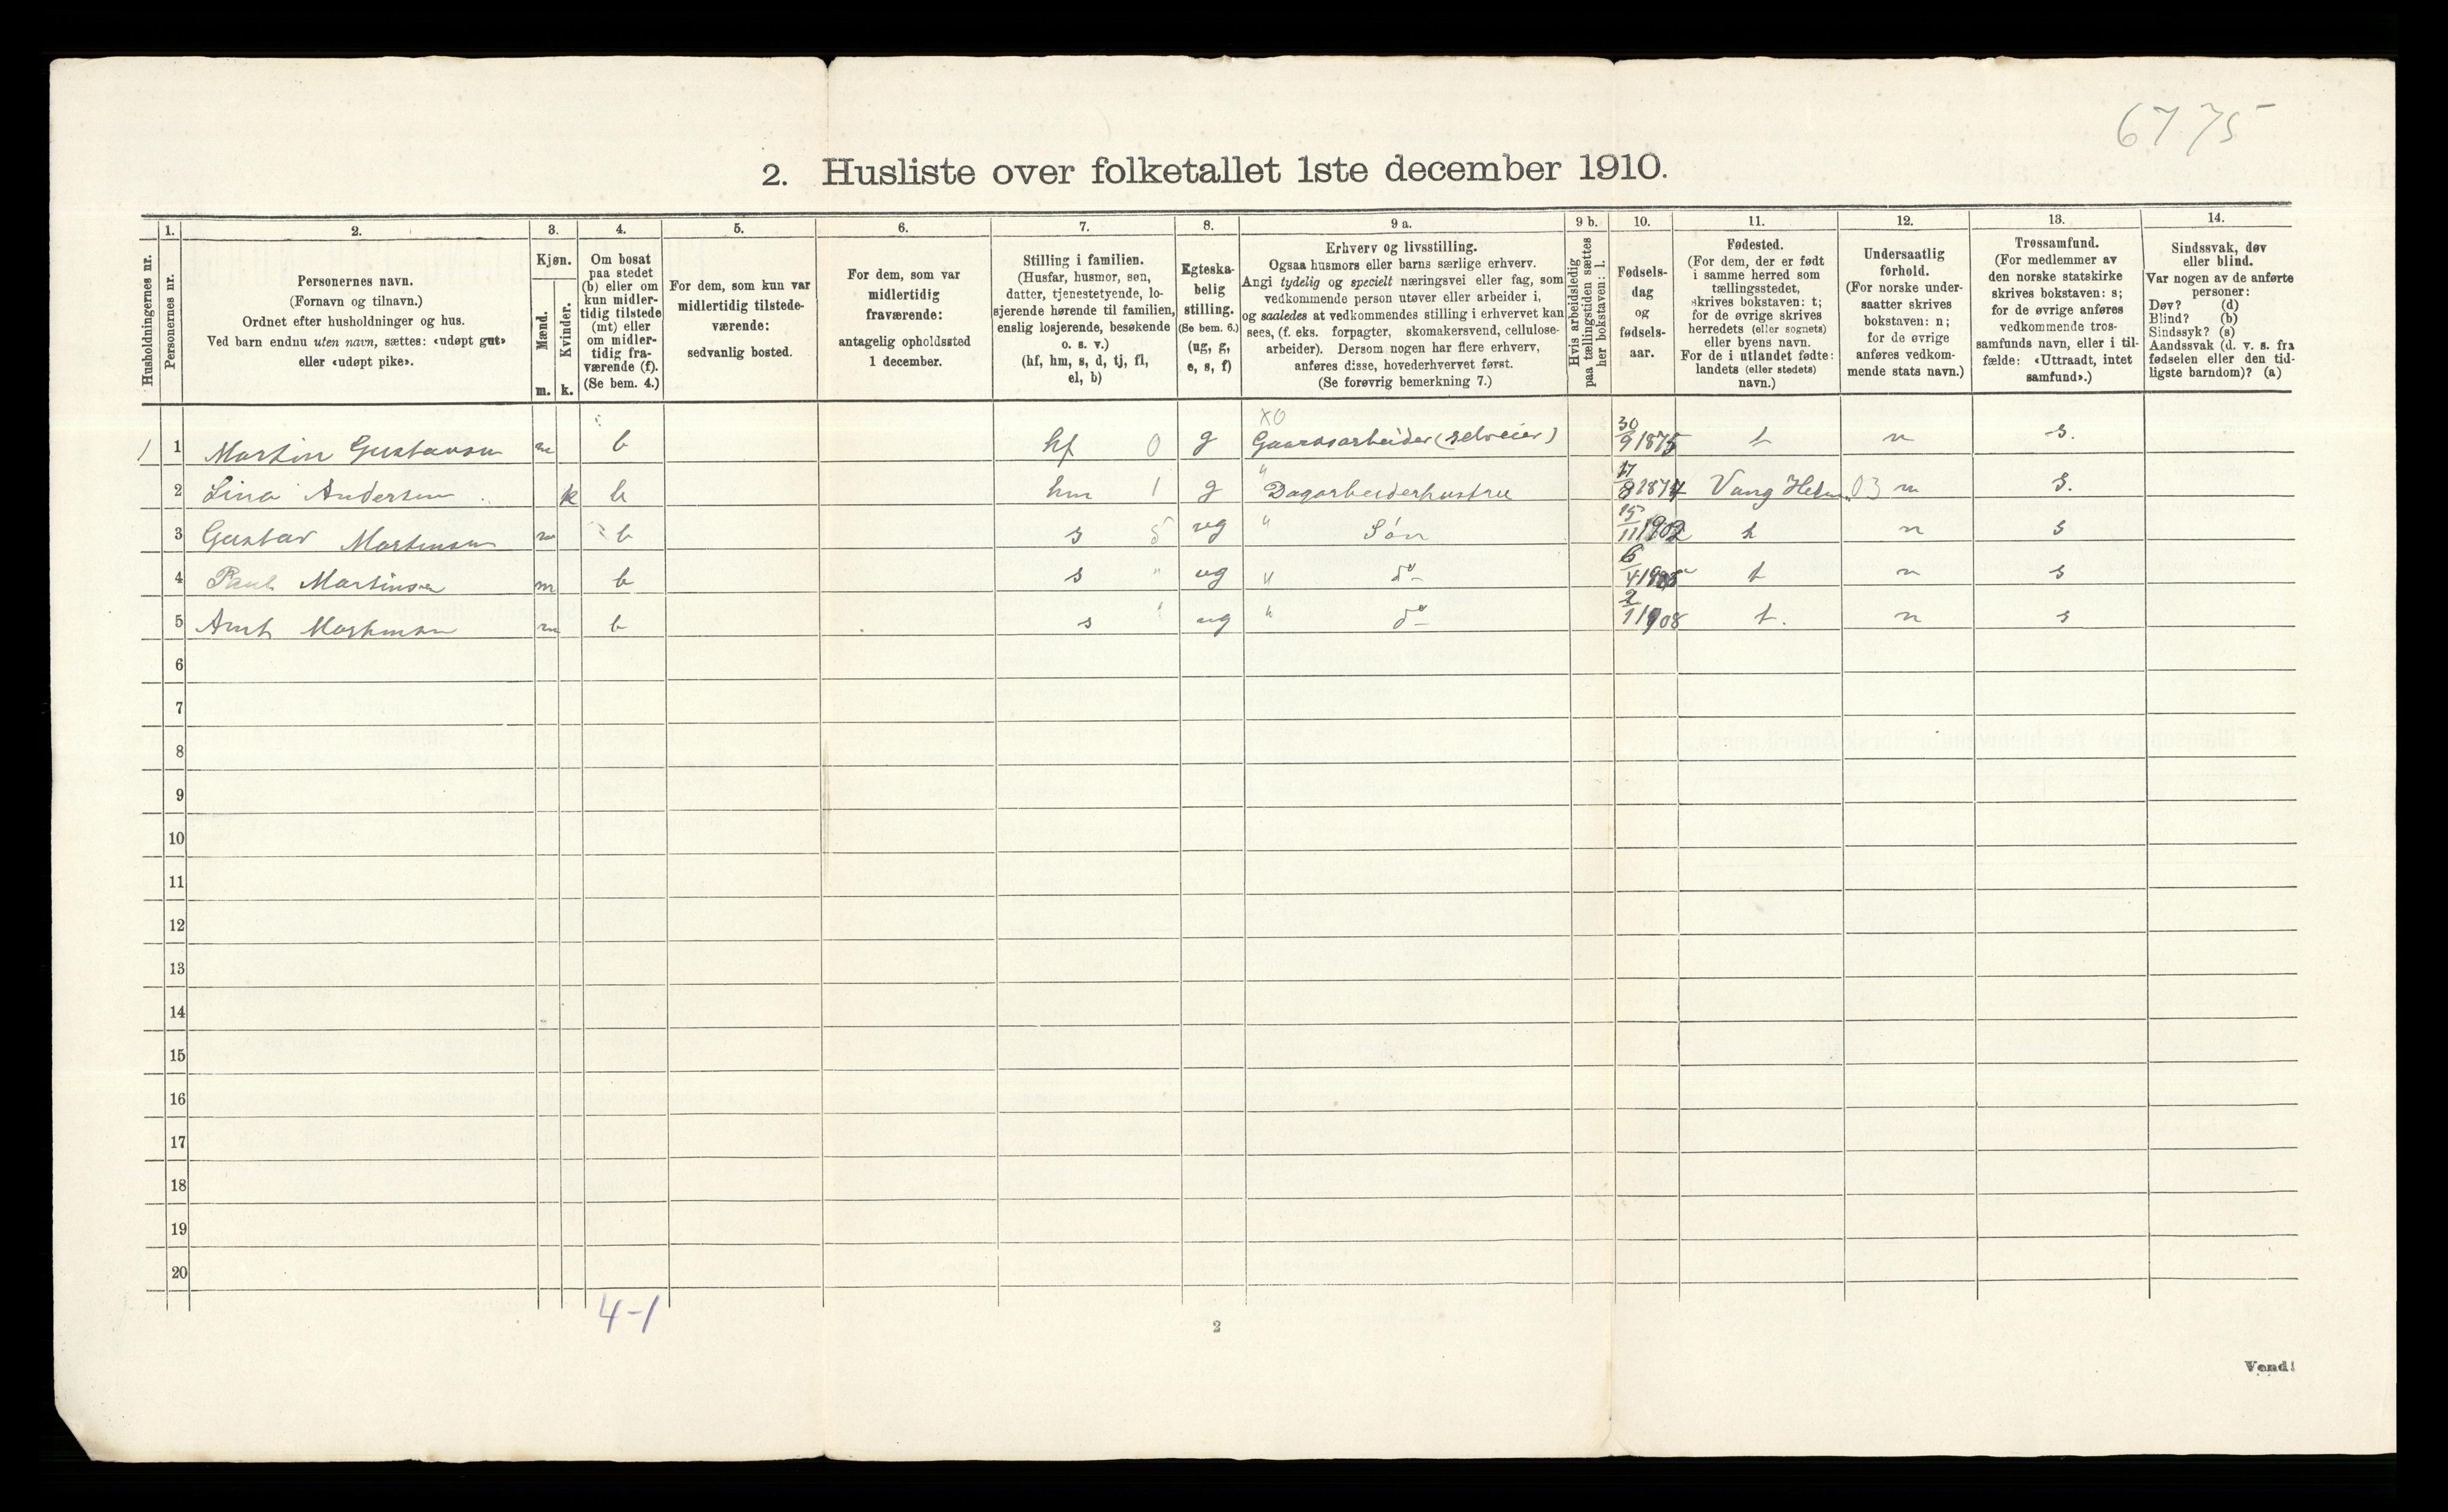 6775
2. Husliste over folketallet 1ste december 1910.
Husholdningernes nr.
1.
Personernes nr.
2.
Personernes navn.
(Fornavn og tilnavn.)
Ordnet efter husholdninger og hus.
Ved barn endnu uten navn, sættes: «udøpt gut»
eller «udøpt pike».
3.
Kjøn.
Mænd.
m.
Kvinder.
k.
4.
Om bosat
paa stedet
(b) eller om
kun midler-
tidig tilstede
(mt) eller
om midler-
tidig fra-
værende (f).
(Se bem. 4.)
5.
For dem, som kun var
midlertidig tilstede-
værende:
sedvanlig bosted.
6.
For dem, som var
midlertidig
fraværende:
antagelig opholdssted
1 december.
7.
Stilling i familien.
(Husfar, husmor, søn,
datter, tjenestetyende, lo-
sjerende hørende til familien,
enslig losjerende, besøkende
o. s. v.)
(hf, hm, s, d, tj, fl,
el, b)
8.
Egteska-
belig
stilling.
(Se bem. 6.)
(ug, g,
e, s, f)
9 a.
Erhverv og livsstilling.
Ogsaa husmors eller barns særlige erhverv.
Angi tydelig og specielt næringsvei eller fag, som
vedkommende person utøver eller arbeider i,
og saaledes at vedkommendes stilling i erhvervet kan
sees, (f. eks. forpagter, skomakersvend, cellulose-
arbeider). Dersom nogen har flere erhverv,
anføres disse, hovederhvervet først.
(Se forøvrig bemerkning 7.)
9 b.
Hvis arbeidsledig
paa tællingstiden sættes
her bokstaven: l.
10.
Fødsels-
dag
og
fødsels-
aar.
11.
Fødested.
(For dem, der er født
i samme herred som
tællingsstedet,
skrives bokstaven: t;
for de øvrige skrives
herredets (eller sognets)
eller byens navn.
For de i utlandet fødte:
landets (eller stedets)
navn.)
12.
Undersaatlig
forhold.
(For norske under-
saatter skrives
bokstaven: n;
for de øvrige
anføres vedkom-
mende stats navn.)
13.
Trossamfund.
(For medlemmer av
den norske statskirke
skrives bokstaven: s;
for de øvrige anføres
vedkommende tros-
samfunds navn, eller i til-
fælde: «Uttraadt, intet
samfund».)
14.
Sindssvak, døv
eller blind.
Var nogen av de anførte
personer:
Døv? (d)
Blind? (b)
Sindssyk? (s)
Aandssvak (d. v. s. fra
fødselen eller den tid-
ligste barndom)? (a)
XO
1 1 Martin Gustavsen m b hf 0 g Gaardsarbeider (selveier) 30/9 1875 t n s.
2 Lina Andersen k b hm 1 g " Dagarbeiderhustru 17/8 1874 Vang Hedm. 03 n s.
3 Gustav Martinsen m b s 5 ug " Søn 15/11 1902 t n s
4 Paul Martinsen m b s " ug " do 6/4 1905 t n s
5 Arnt Martinsen m b s " ug " do 2/1 1908 t. n s
6
7
8
9
10
11
12
13
14
15
16
17
18
19
20
4-1
2
Vend!